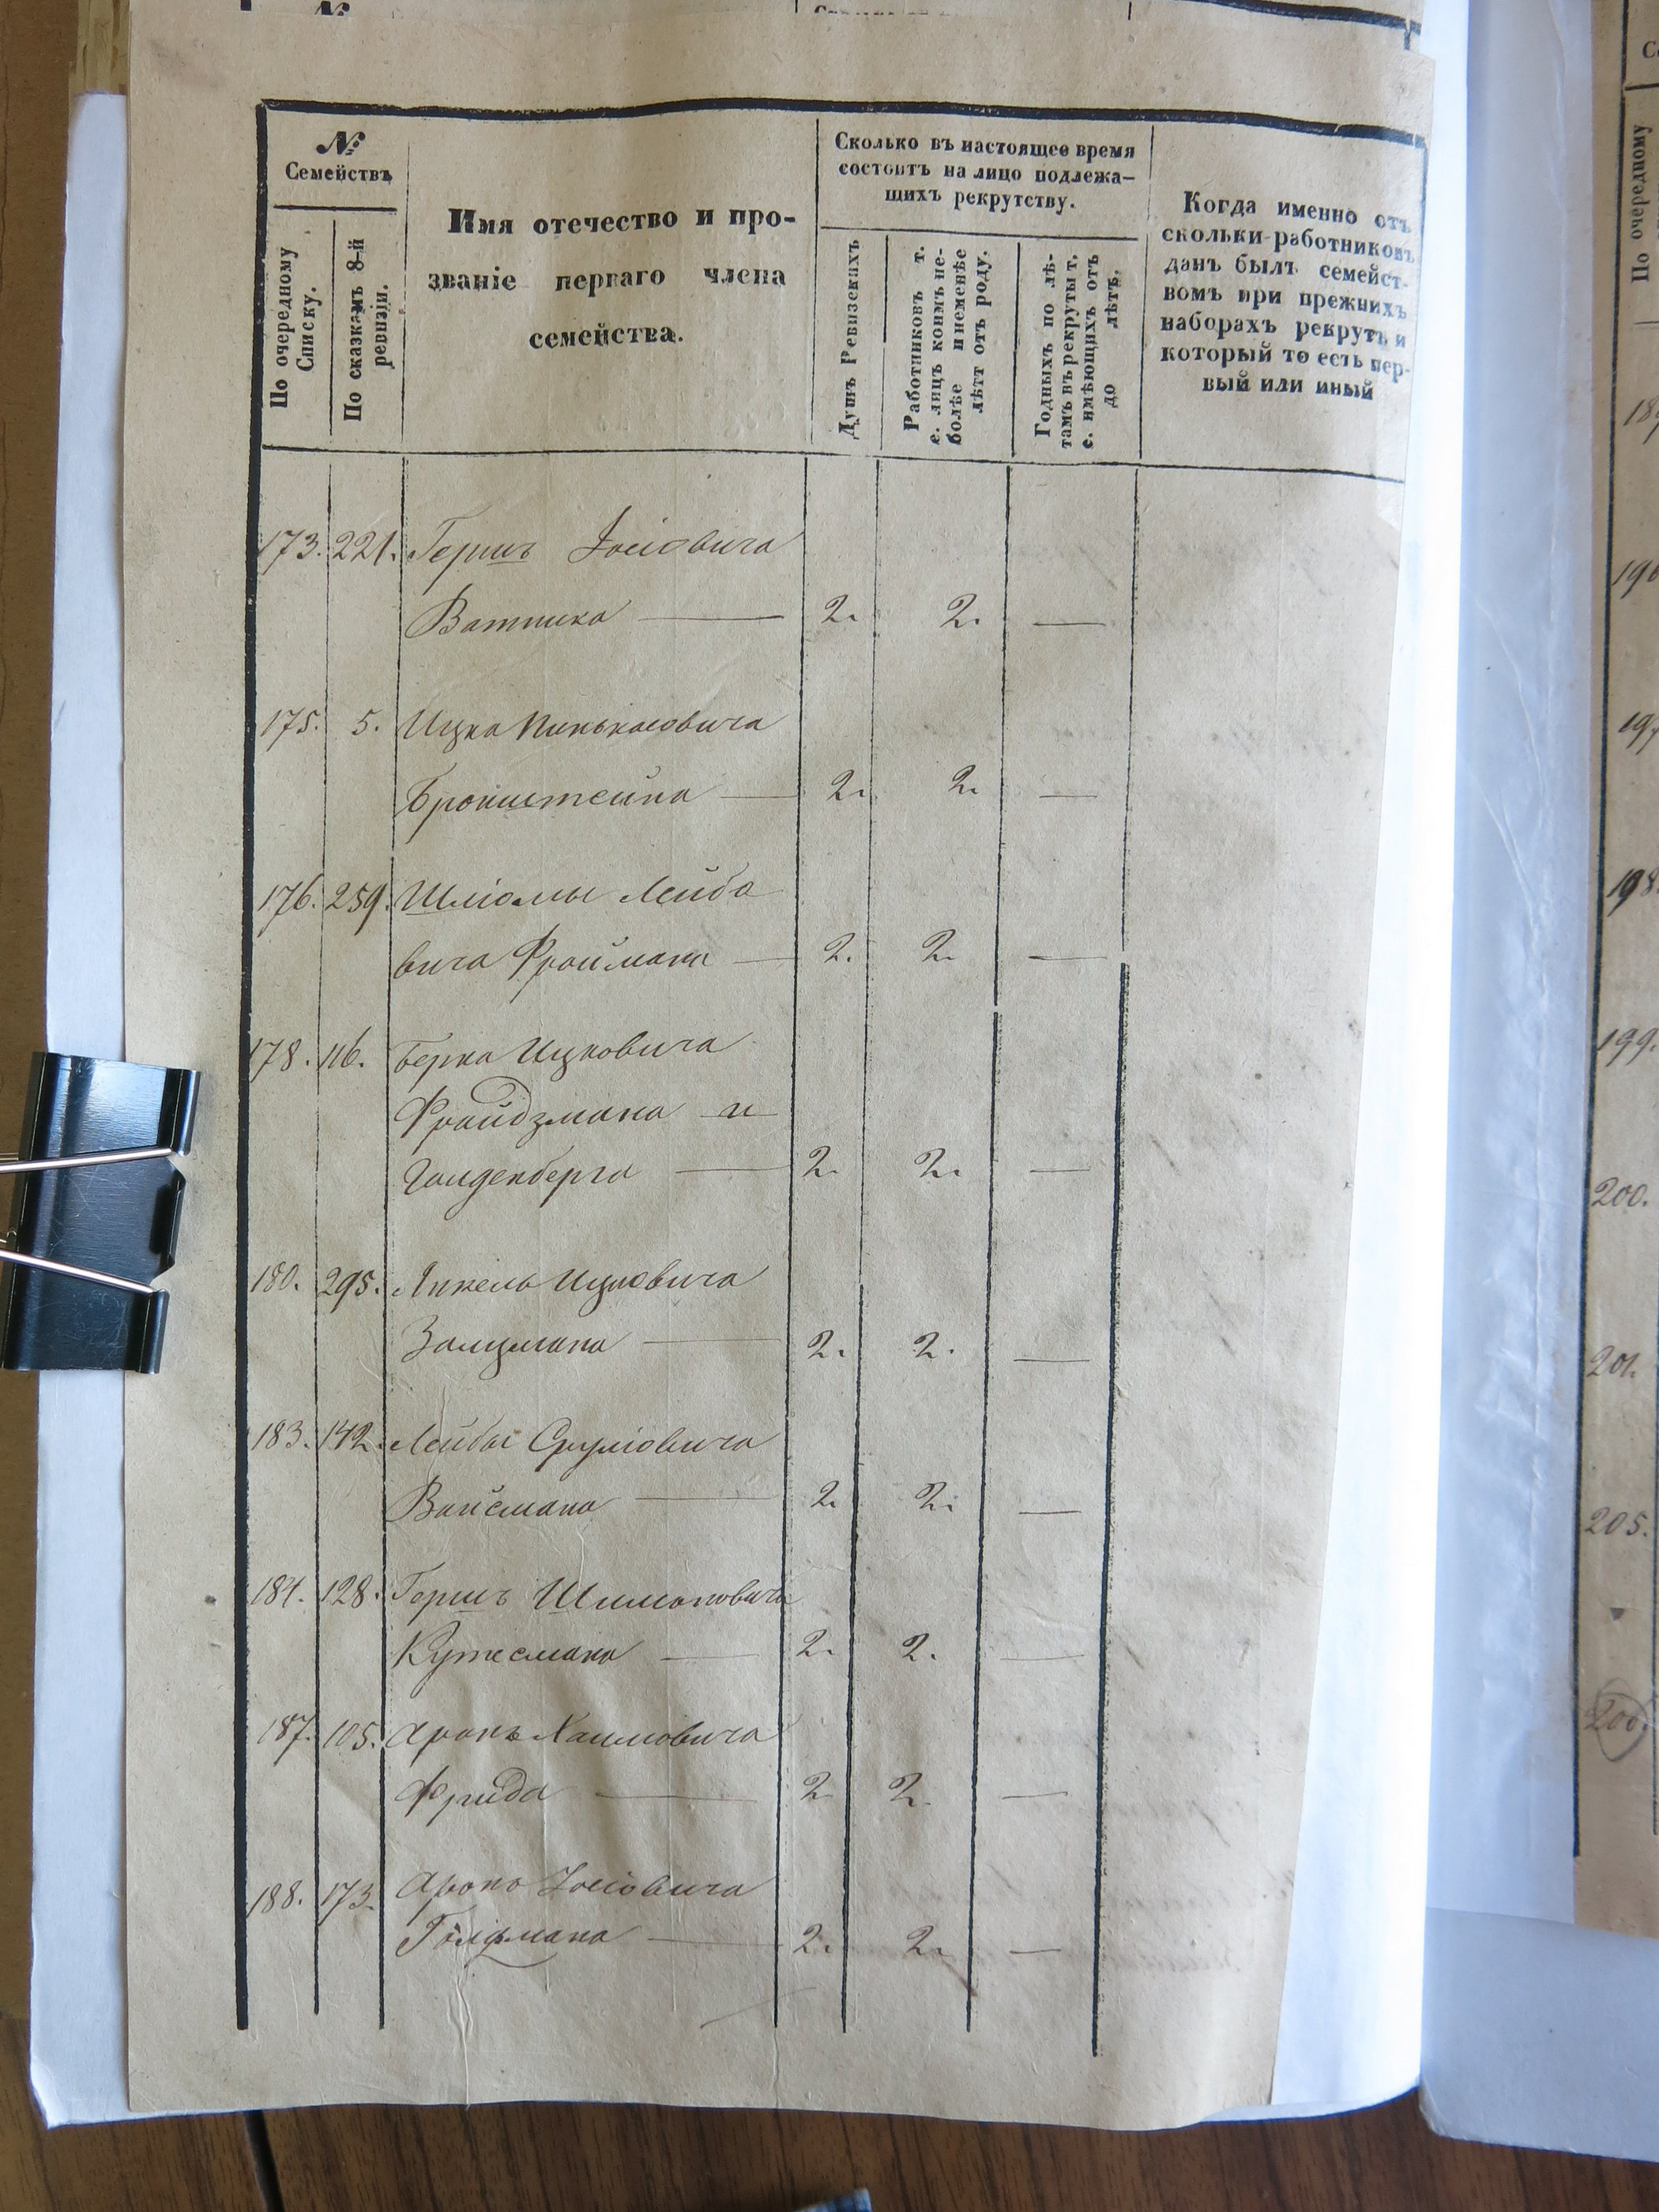 №
Семействъ
По очередному
Списку.
По сказкамъ 8-й
ревизіи.
Имя отечество и про-
званіе перваго члена
семейства.
Сколько въ настоящее время
состоитъ на лицо подлежа-
щихъ рекрутству.
Душъ Ревизскихъ
Работниковъ т.
е. лицъ коимъ не-
болѣе и неменѣе
лѣтт отъ роду.
Годныхъ по лѣ-
тамъ въ рекруты т.
е. имѣющихъ отъ
до лѣтъ.
Когда именно отъ
скольки работниковъ
данъ былъ семейст-
вомъ при прежнихъ
наборахъ рекрутъ и
который то есть пер-
вый или иный
173. 221. Гершъ Іосіовича
Ватника — 2. 2. —
175. 5. Ицка Пинькасовича
Бронштейна — 2. 2. —
176. 259. Шліомы Лейбо
вича Фроймана — 2. 2. —
178. 116. Берка Ицковича
Фройдзмана и
Голденберга — 2. 2. —
180. 295. Янкель Ицковича
Залцмана — 2. 2. —
183. 142. Лейбы Сруліовича
Вайсмана — 2. 2. —
184. 128. Гершъ Шимоновича
Кутесмана — 2. 2. —
187. 105. Аронъ Хаимовича
Фрида — 2 2. —
188. 173. Аронъ Іосіовича
— 2. 2. —
По очередному
198.
199.
200.
201.
205.